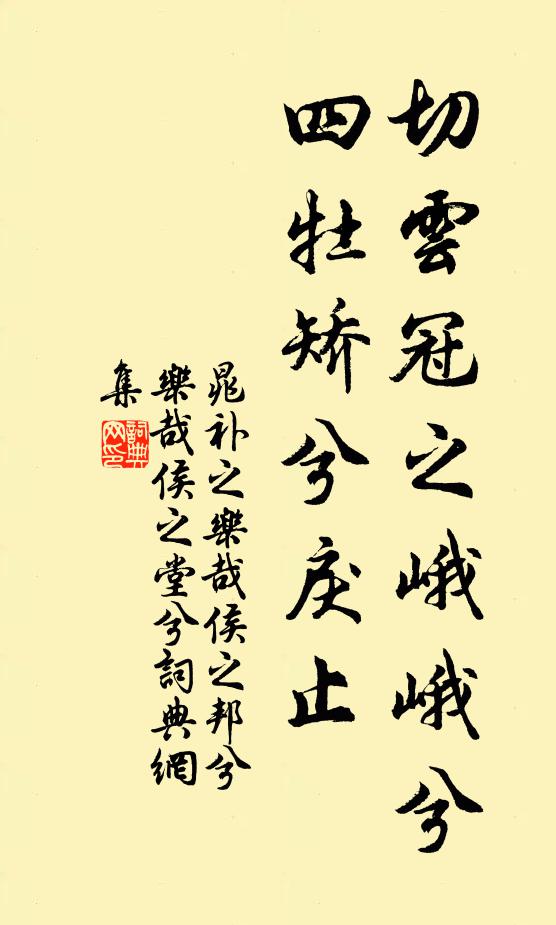 切雲冠之峨峨兮
四牡矯兮戾止
晁补之樂哉侯之邦兮
樂哉侯之堂兮詞典網
集
詞典網印